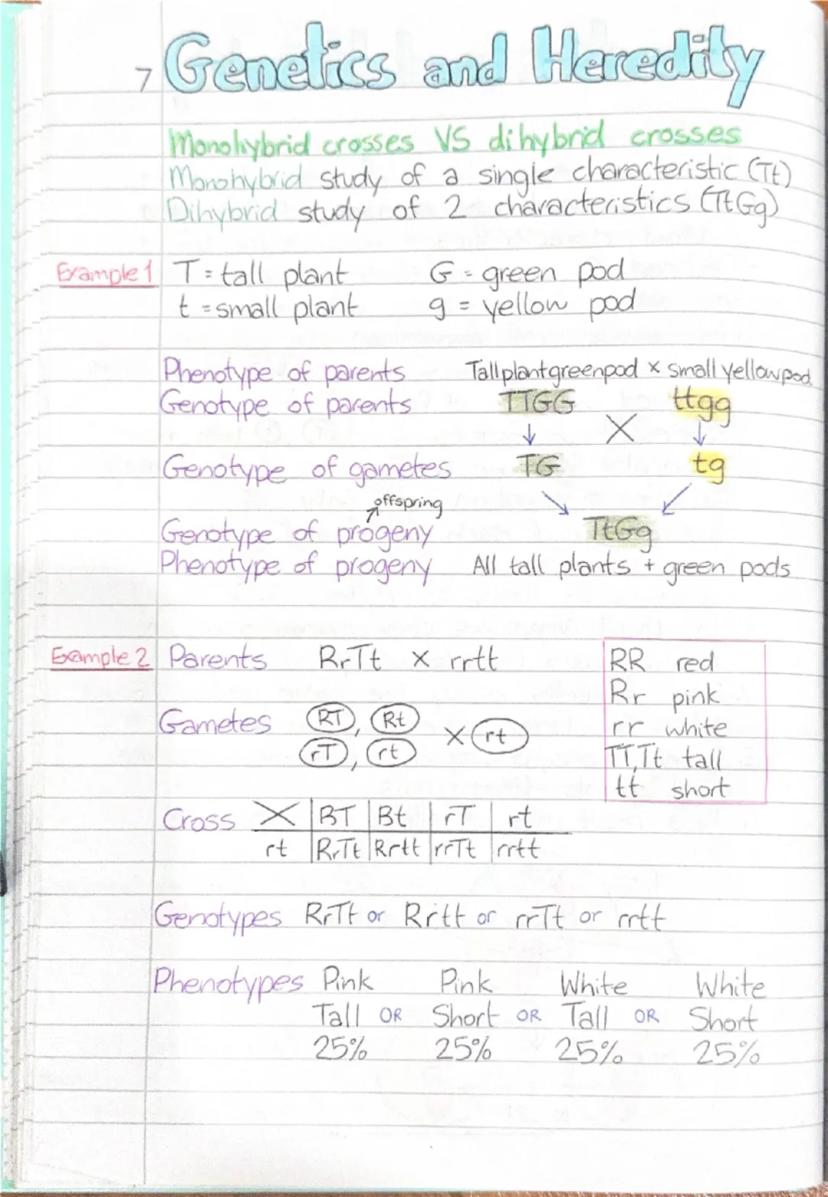 7 Genetics and Heredity
Monohybrid crosses VS dihybrid crosses
Monohybrid study of a single characteristic (Tt)
Dihybrid study of 2 characteristics (TtGg)
Example 1 T = tall plant G = green pod
t = small plant g = yellow pod
Phenotype of parents Tall plant green pod x small yellow pod
Genotype of parents TTGG X ttgg
Genotype of gametes TG tg
offspring
Genotype of progeny TtGg
Phenotype of progeny All tall plants + green pods
Example 2 Parents RrTt X rrtt RR red
Rr pink
Gametes RT, Rt X rt rr white
rT, rt TT,Tt tall
tt short
Cross X BT Bt rT rt
rt RrTt Rrtt rrTt rrtt
Genotypes RrTt or Rrtt or rrTt or rrtt
Phenotypes Pink Pink White White
Tall OR Short OR Tall OR Short
25% 25% 25% 25%